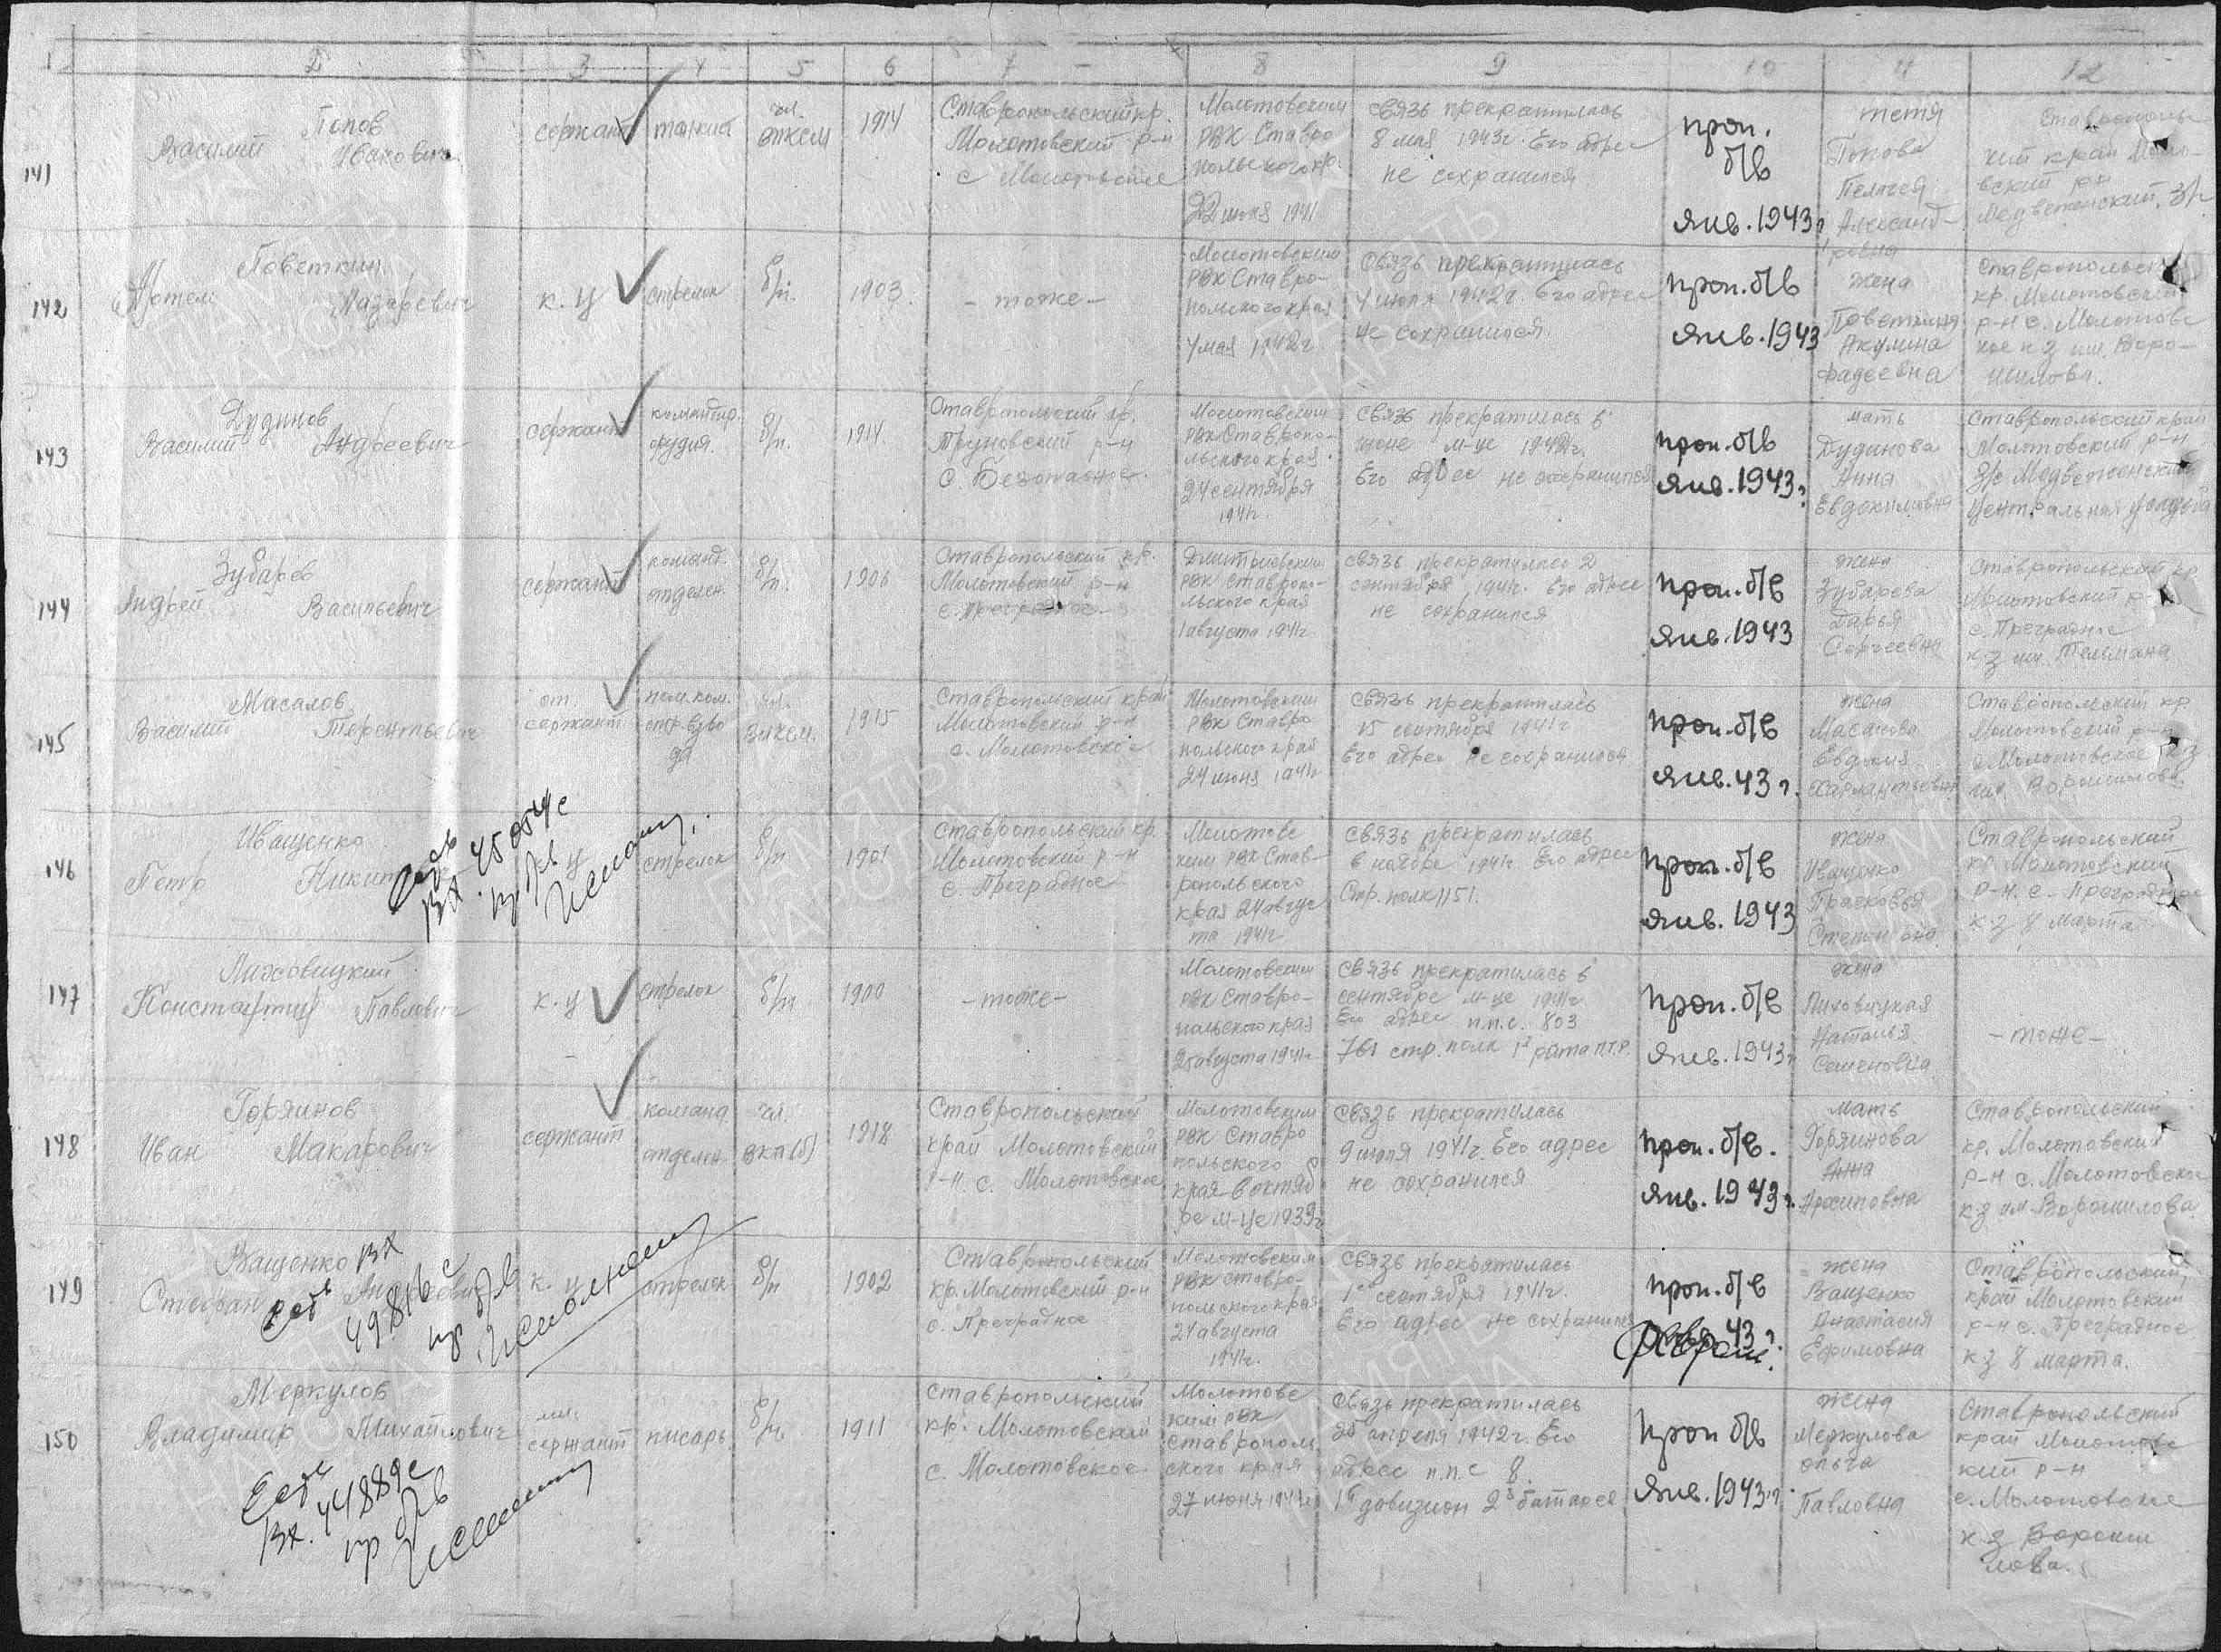 1 2 3 4 5 6 7 8 9 10 11 12
141
Попов
Василий Иванович
сержант
танкист
чл.
ВЛКСМ
1914
Ставропольский кр.
Молотовский р-н
с Молотовское
Молотовским
РВК Ставро
польского кр.
22 июня 1941
связь прекратилась
8 мая 1943г. Его адрес
не сохранился
проп.
б/в
янв. 1943г
тетя
Попова
Пелагея
Александ-
ровна
Ставрополь
кий край Моло-
вский р-н
Медвеженский, з/с
142
Поветкин
Артем Назарович
к. ц
стрелок
б/п.
1903.
- тоже -
Молотовским
РВК Ставро-
польского края
4 мая 1942г.
Связь прекратилась
4 июля 1942г. Его адрес
не сохранился.
проп. б/в
янв. 1943
жена
Поветкина
Акулина
Фадеевна
Ставропольский
кр. Молотовский
р-н с. Молотовс
кое к-з им. Воро-
шилова.
143
Дудинов
Василий Андреевич
сержант
командир.
орудия.
б/п.
1914
Ставропольский кр.
Труновский р-н
с. Безопасное.
Молотовским
РВК Ставропо-
льского края.
24 сентября
1941г.
Связь прекратилась в
июне м-це 1942г.
Его адрес не сохранился
проп. б/в
янв. 1943г
мать
Дудинова
Анна
Евдокимовна
Ставропольский край
Молотовский р-н
З/с Медвеженский
Центральная усадьба
144
Зубарев
Андрей Васильевич
сержант
команд.
отделен.
б/п.
1906
Ставропольский кр.
Молотовский р-н
с. Преградное.
Дмитриевским
РВК Ставропо-
льского края
1 августа 1941г
связь прекратилась 2
сентября 1941г. Его адрес
не сохранился
проп. б/в
янв. 1943
жена
Зубарева
Дарья
Сергеевна
Ставропольский кр
Молотовский р-н
с. Преградное
к-з им. Тельмана
145
Масалов
Василий Терентьевич
ст.
сержант
пом. ком.
стр. взво
да
чл.
ВЛКСМ.
1915
Ставропольский край
Молотовский р-н
с. Молотовское
Молотовским
РВК Ставро
польского края
24 июня 1941г
связь прекратилась
15 сентября 1941г
Его адрес не сохранился
проп. б/в
янв. 43 г.
жена
Масалова
Евдокия
Ставропольский кр.
Молотовский р-н
с Молотовское к-з
им. Ворошилова.
146
Иващенко
Петр Никит
есть
вх. 45054с
пр б/в
стрелок
б/п
1901
Ставропольский кр.
Молотовский р-н
с. Преградное
Молотовс
ким РВК Став-
ропольского
края 24 авгус
та 1941г
связь прекратилась
в ноябре 1941г. Его адрес
Стр. полк 1151.
проп. б/в
янв. 1943
жена
Иващенко
Прасковья
Степановна
Ставропольский
кр. Молотовский
р-н. с. Преградное
к-з 8 Марта
147
Лиховицкий
Константин Павлович
к. ц
стрелок
б/п
1900
- тоже -
Молотовским
РВК Ставро-
польского края
25 августа 1941г
связь прекратилась в
сентябре м-це 1941г
Его адрес п.п.с. 803
761 стр. полк 1я рота П.Т.Р.
проп. б/в
янв. 1943г
жена
Лиховицкая
Наталья
Семеновна
- тоже -
148
Горяинов
Иван Макарович
сержант
команд
отделен
чл.
ВКП(б)
1918
Ставропольский
край Молотовский
р-н с. Молотовское
Молотовским
РВК Ставро
польского
края в октяб
ре м-це 1939г
связь прекратилась
9 июля 1941г. Его адрес
не сохранился
проп. б/в.
янв. 1943г.
мать
Горяинова
Анна
Архиповна
Ставропольский
кр. Молотовский
р-н с. Молотовское
к-з им Ворошилова
149
Ващенко
Стефан Андреевич
есть вх
49816с
пр б/в
к. ц
стрелок
б/п
1902
Ставропольский
кр. Молотовский р-н
с. Преградное
Молотовским
РВК Ставро-
польского края
24 августа
1941г.
связь прекратилась
1го сентября 1941г.
Его адрес не сохранился
проп. б/в
43 г.
феврал.
жена
Ващенко
Анастасия
Ефимовна
Ставропольский
край Молотовский
р-н с. Преградное
к-з 8 марта.
150
Меркулов
Владимир Михайлович
Есть
Вх. 44889с
пр б/в
мл.
сержант
писарь
б/п
1911
Ставропольский
кр. Молотовский
с. Молотовское
Молотовс
ким РВК
Ставрополь
ского края
27 июня 1941г
Связь прекратилась
25 апреля 1942г. Его
адрес п.п.с 8.
1й дивизион 2я батарея
проп б/в
янв. 1943г.
жена
Меркулова
Ольга
Павловна
Ставропольский
край Молотовс
кий р-н
с. Молотовское
к-з Вороши
лова.